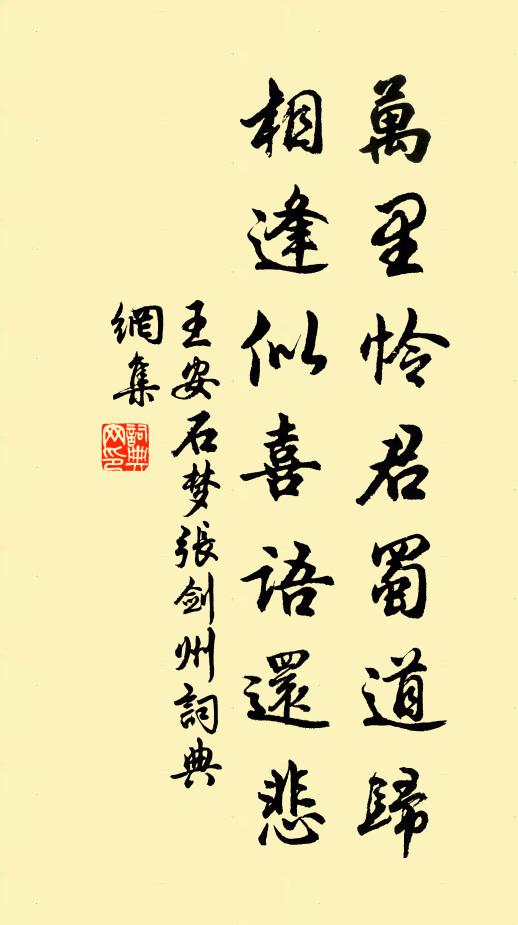 萬里怜君蜀道歸
相逢似喜語還悲
王安石梦張剑州詞典
網集
詞典網印